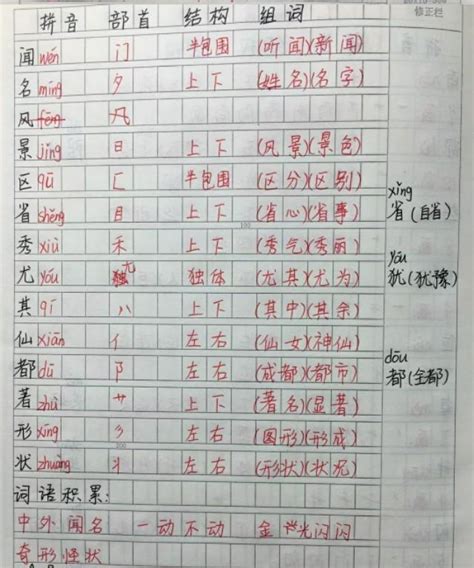 修正栏
拼音 部首 结构 组词
闻 wén 门 半包围 (听闻)(新闻)
名 míng 夕 上下 (姓名)(名字)
风 fēng 几
景 jǐng 日 上下 (风景)(景色)
区 qū 匚 半包围 (区分)(区别)
xǐng
省 shěng 目 上下 (省心)(省事) 省(自省)
秀 xiù 禾 上下 (秀气)(秀丽)
yóu
尤 yóu 尤 独体 (尤其)(尤为) 犹(犹豫)
其 qí 八 上下 (其中)(其余)
仙 xiān 亻 左右 (仙女)(神仙)
dōu
都 dū 阝 左右 (成都)(都市) 都(全都)
著 zhù 艹 上下 (著名)(显著)
形 xíng 彡 左右 (图形)(形成)
状 zhuàng 丬 左右 (形状)(状况)
词语积累:
中外闻名 一动不动 金光闪闪
奇形怪状